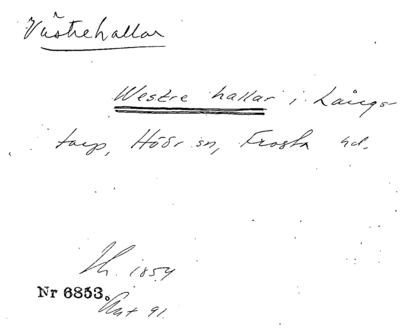 Västrehallar
Westre hallar i Långs-
torp, Höör sn, Frosta hd.
Th. 1854
Nr 6853.
Ant 91.